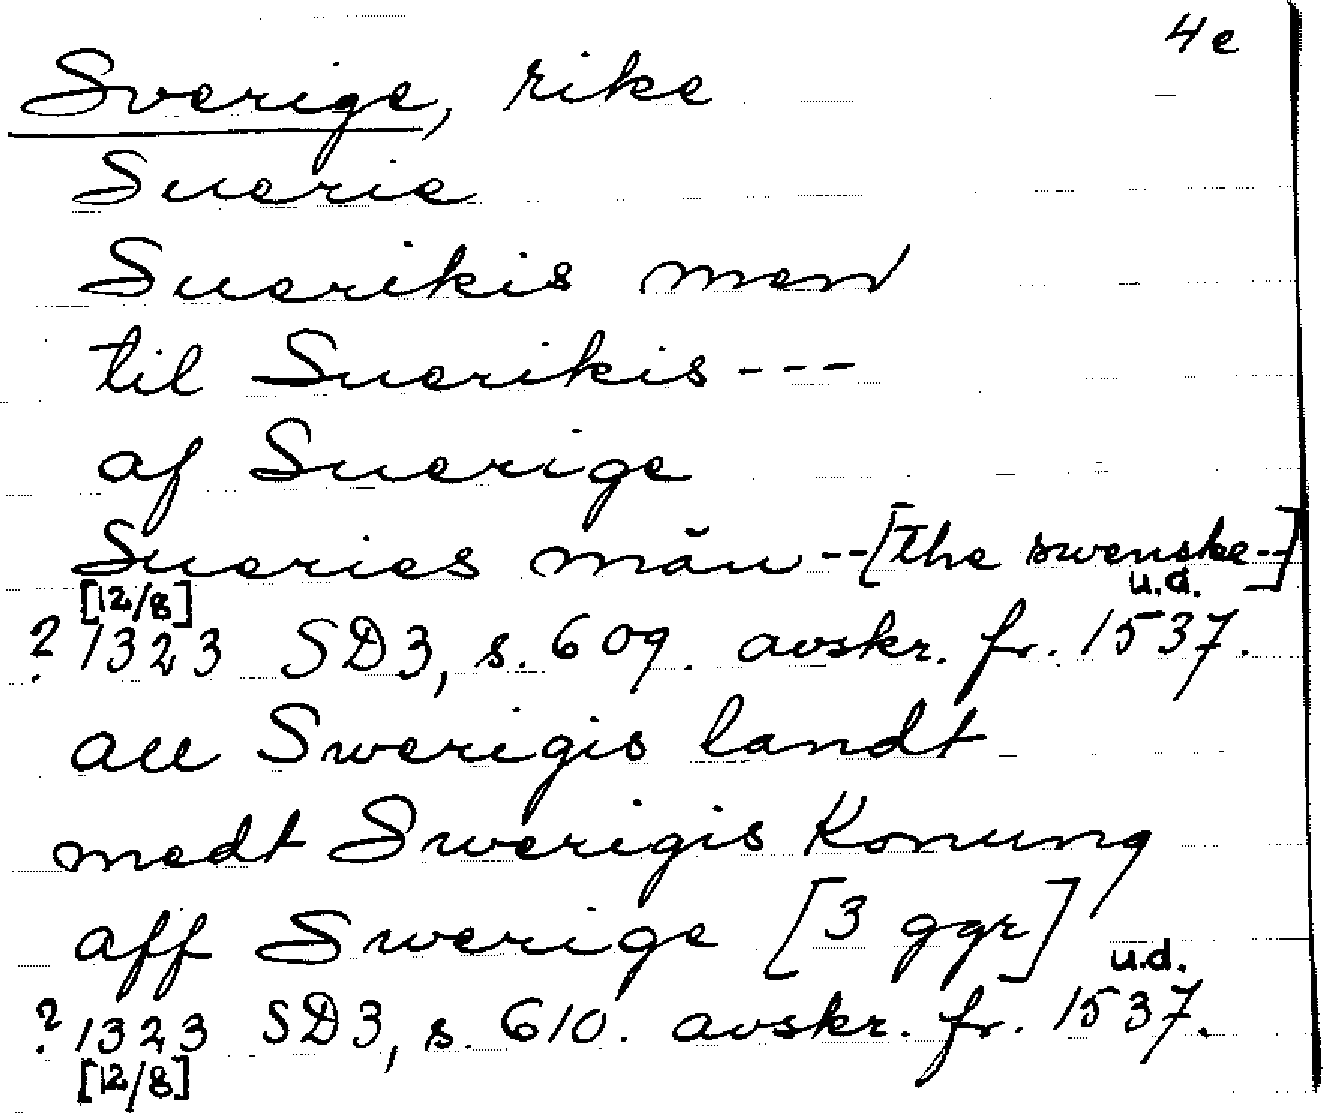 4e
Sverige, rike
Suerie
Suerikis men
til Suerikis - - -
af Suerige
Sueries män -- [the swenske--]
[12/8] u.d.
? 1323 SD3, s. 609. avskr. fr. 1537.
all Swerigis landt
medt Swerigis Konung
aff Swerige [3 ggr]
u.d.
? 1323 SD3, s. 610. avskr. fr. 1537.
[12/8]